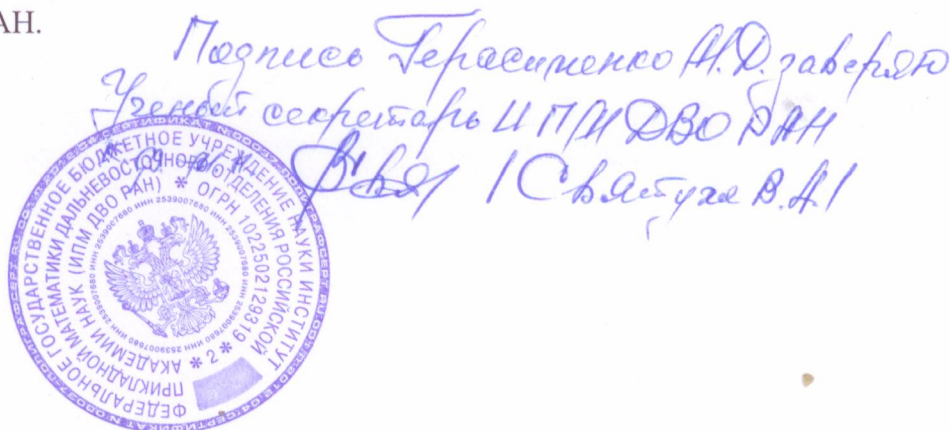 АН.
Подпись Герасименко М.Д. заверяю
Ученый секретарь ИПМ ДВО РАН
/ Святуха В.А./
ФЕДЕРАЛЬНОЕ ГОСУДАРСТВЕННОЕ БЮДЖЕТНОЕ УЧРЕЖДЕНИЕ НАУКИ ИНСТИТУТ
ПРИКЛАДНОЙ МАТЕМАТИКИ ДАЛЬНЕВОСТОЧНОГО ОТДЕЛЕНИЯ РОССИЙСКОЙ
АКАДЕМИИ НАУК (ИПМ ДВО РАН) * ОГРН 1022502129319
* 2 *
ИНН 2539007680 ИНН 2539007680 ИНН 2539007680 ИНН 2539007680